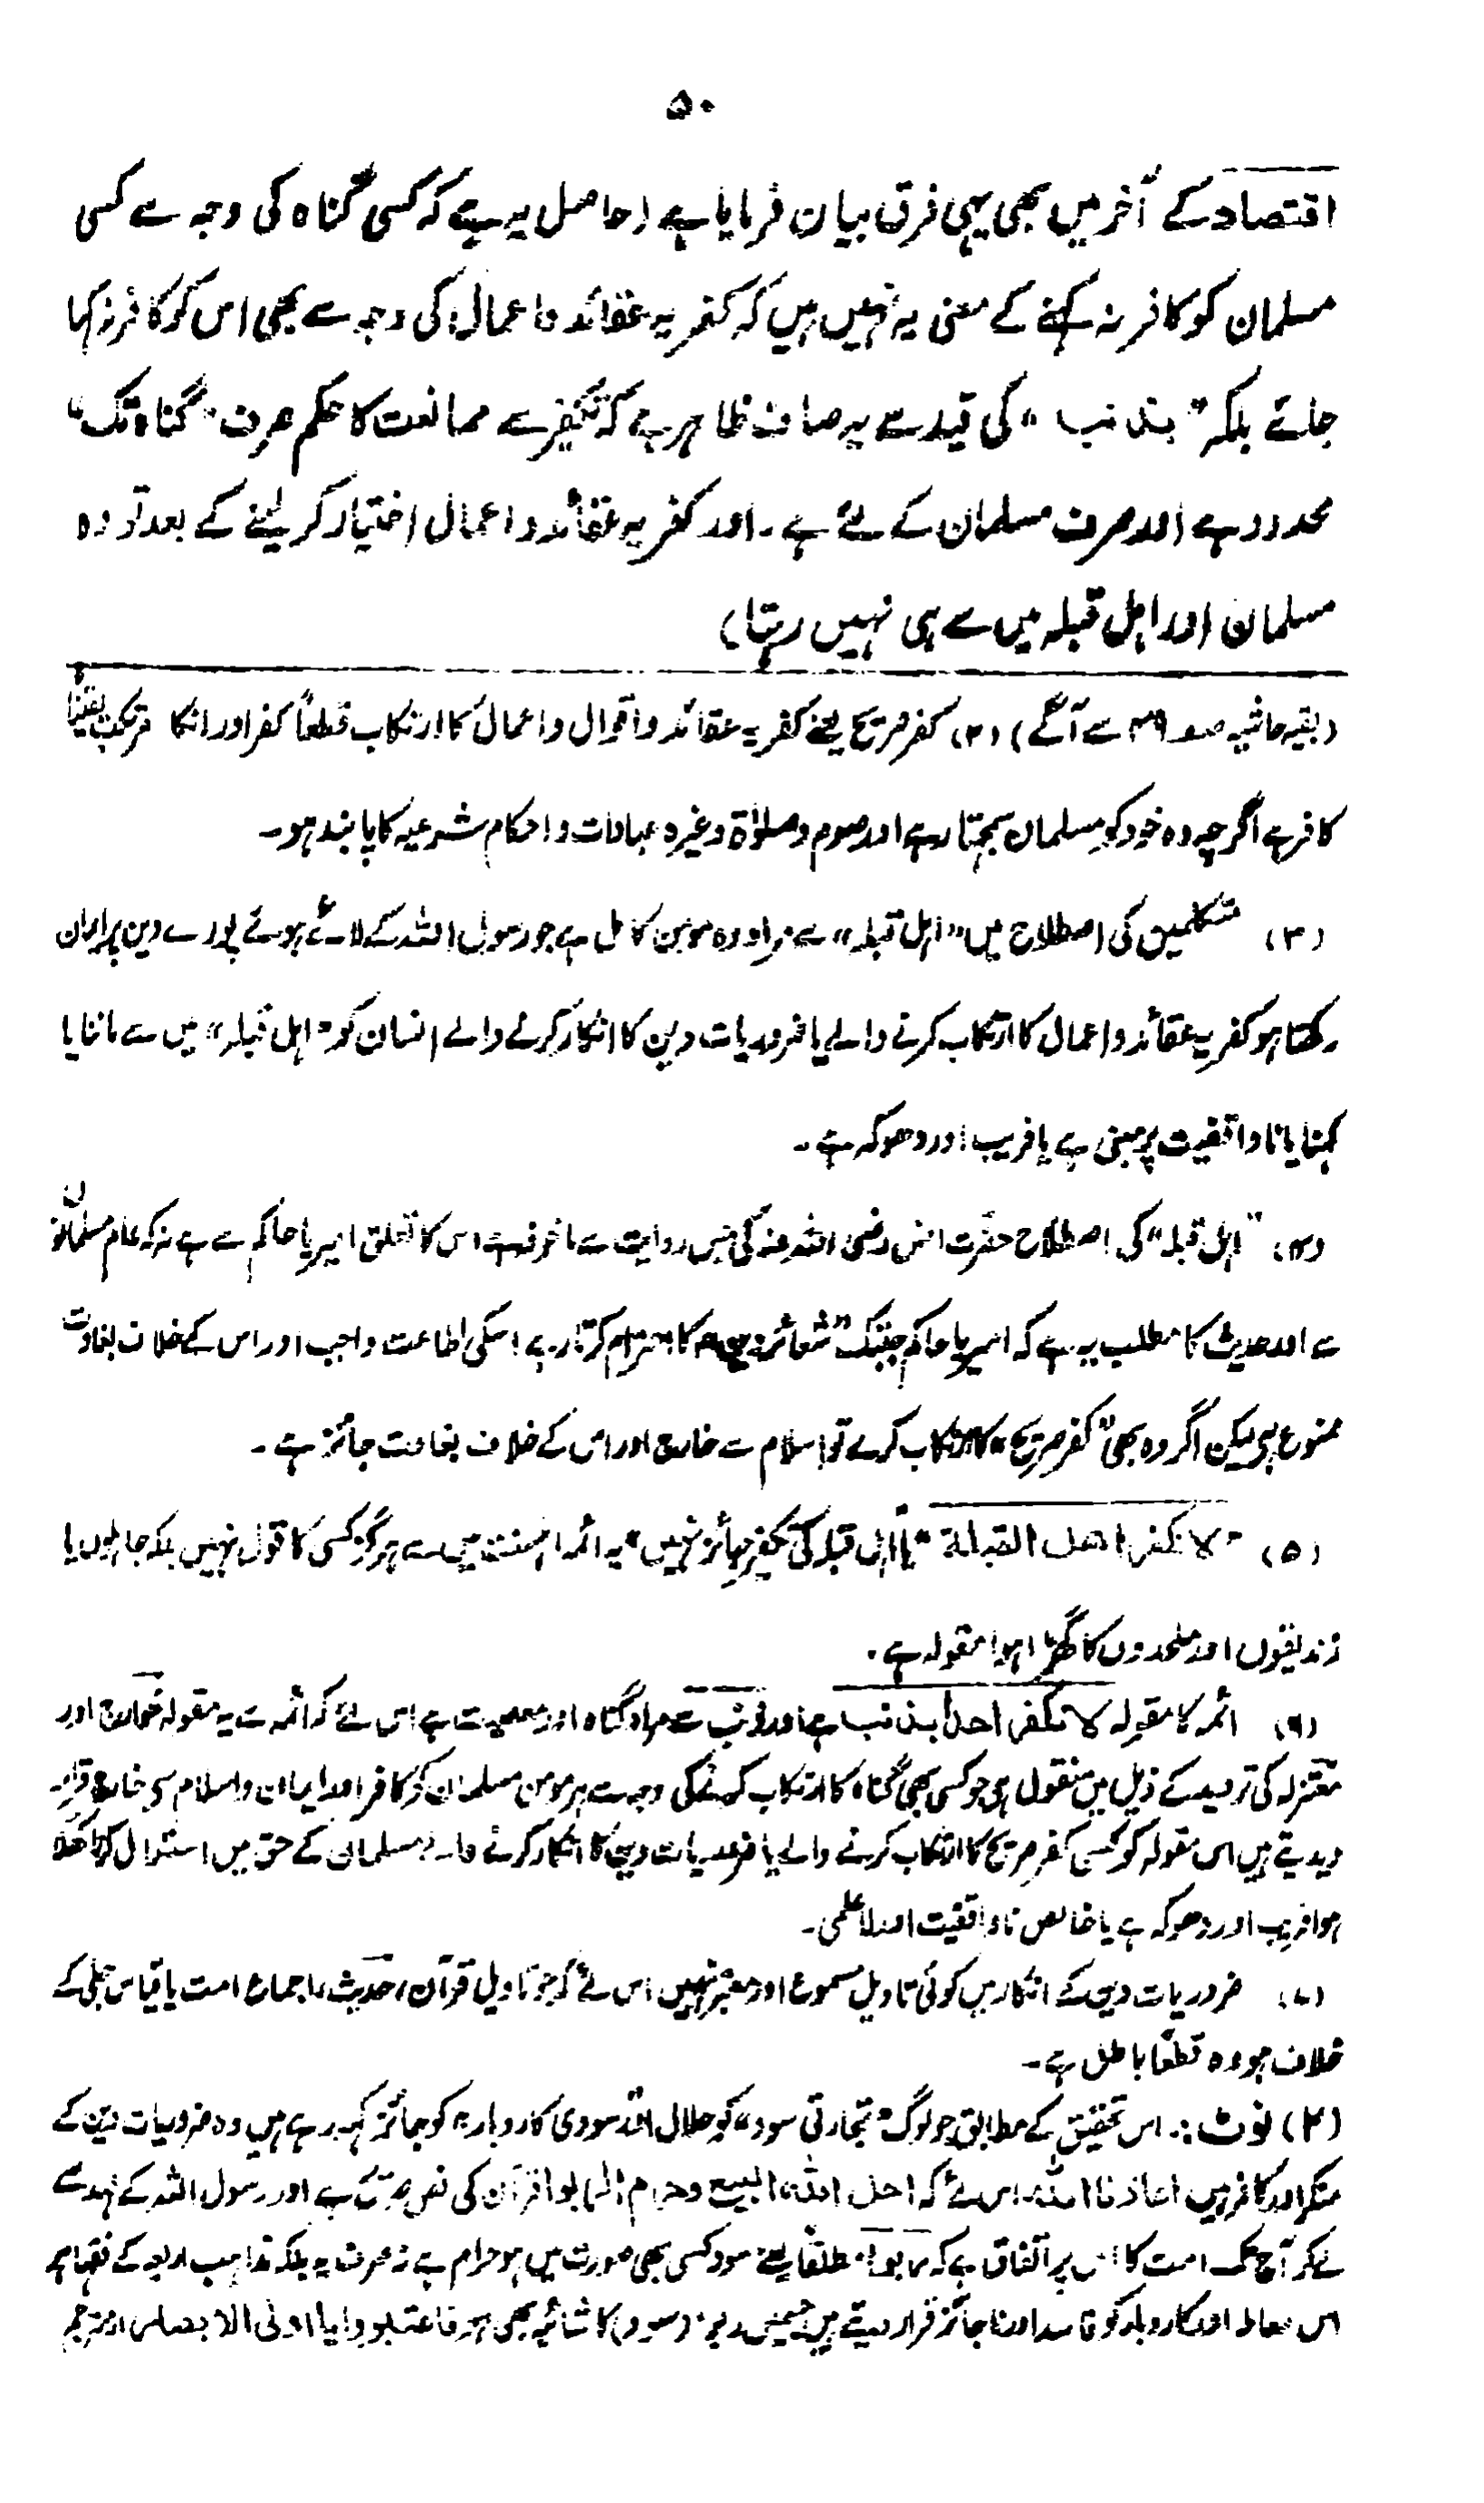 ۵۰
اقتصاد کے آخر میں بھی یہی فرق بیان فرمایا ہے (حاصل یہ ہے کہ کسی گناہ کی وجہ سے کسی
مسلمان کو کافر نہ کہنے کے معنی یہ نہیں ہیں کہ کفریہ عقائد و اعمال کی وجہ سے بھی اس کو کافر نہ کہا
جائے بلکہ "بذنب" کی قید سے یہ صاف ظاہر ہے کہ تکفیر سے ممانعت کا حکم صرف "گناہ تک"
محدود ہے اور صرف مسلمان کے لئے ہے۔ اور کفریہ عقائد و اعمال اختیار کر لینے کے بعد تو وہ
مسلمان اور اہل قبلہ میں سے ہی نہیں رہتا)
(بقیہ حاشیہ صہ ۴۹ سے آگے) (۲) کفر صریح یعنی کفریہ عقائد و اقوال و اعمال کا ارتکاب قطعاً کفر اور انکا مرتکب یقیناً
کافر ہے اگرچہ وہ خود کو مسلمان سمجھتا رہے اور صوم و صلوٰۃ وغیرہ عبادات و احکام شرعیہ کا پابند ہو۔
(۳) متکلمین کی اصطلاح میں "اہل قبلہ" سے مراد وہ مومن کامل ہے جو رسول اللہ کے لائے ہوئے پورے دین پر ایمان
رکھتا ہو کفریہ عقائد و اعمال کا ارتکاب کرنے والے یا ضروریات دین کا انکار کرنے والے انسان کو "اہل قبلہ" میں سے ماننا یا
کہنا یا ناواقفیت پر مبنی ہے یا فریب اور دھوکہ ہے۔
(۴) "اہل قبلہ" کی اصطلاح حضرت انس رضی اللہ عنہ کی جس روایت سے ماخوذ ہے اس کا تعلق امیر یا حاکم سے ہے نہ کہ عام مسلمانوں
سے اور حدیث کا مطلب یہ ہے کہ امیر یا حاکم جبتک "شعائر دین" کا احترام کرتا رہے اسکی اطاعت واجب اور اس کے خلاف بغاوت
ممنوع ہے لیکن اگر وہ بھی "کفر صریح" کا ارتکاب کرے تو اسلام سے خارج اور اس کے خلاف بغاوت جائز ہے۔
(۵) "لا نکفر اهل القبلة" یا "اہل قبلہ کی تکفیر جائز نہیں" یہ ائمہ اہلسنت میں سے ہرگز کسی کا قول نہیں بلکہ جاہلوں یا
زندیقوں اور ملحدوں کا گھڑا ہوا مقولہ ہے۔
(۶) ائمہ کا مقولہ لا نکفر احداً بذنب ہے اور ذنب سے مراد گناہ اور معصیت ہے اس لئے کہ ائمہ سے یہ مقولہ خوارج اور
معتزلہ کی تردید کے ذیل میں منقول ہے جو کسی بھی گناہ کا ارتکاب کرنے کی وجہ سے ہر مومن مسلمان کو کافر اور ایمان و اسلام سے خارج قرار
دیدیتے ہیں اس مقولہ کو کسی کفر صریح کا ارتکاب کرنے والے یا ضروریات دین کا انکار کرنے والے مسلمان کے حق میں استعمال کرنا کھلا
ہوا فریب اور دھوکہ ہے یا خالص ناواقفیت اور لاعلمی۔
(۷) ضروریات دین کے انکار میں کوئی تاویل مسموع اور معتبر نہیں اس لئے کہ جو تاویل قرآن، حدیث، اجماع امت یا قیاس جلی کے
خلاف ہو وہ قطعاً باطل ہے۔
(۲) نوٹ:۔ اس تحقیق کے مطابق جو لوگ "تجارتی سود" کو حلال اور سودی کاروبار کو جائز کہہ رہے ہیں وہ ضروریات دین کے
منکر اور کافر ہیں اعاذنا اللہ اس لئے کہ احل اللہ البیع وحرم الربوا قرآن کی نص صریح ہے اور رسول اللہ کے عہد سے
لیکر آج تک امت کا اس پر اتفاق ہے کہ ربوا مطلقاً یعنی سود کسی بھی صورت میں ہو حرام ہے نہ صرف یہ بلکہ مذاہب اربعہ کے فقہا ہر
اس معاملہ اور کاروبار کو فاسد اور ناجائز قرار دیتے ہیں جسمیں ربوا (سود) کا شائبہ بھی ہو فاعتبروا یا اولی الابصار از مترجم